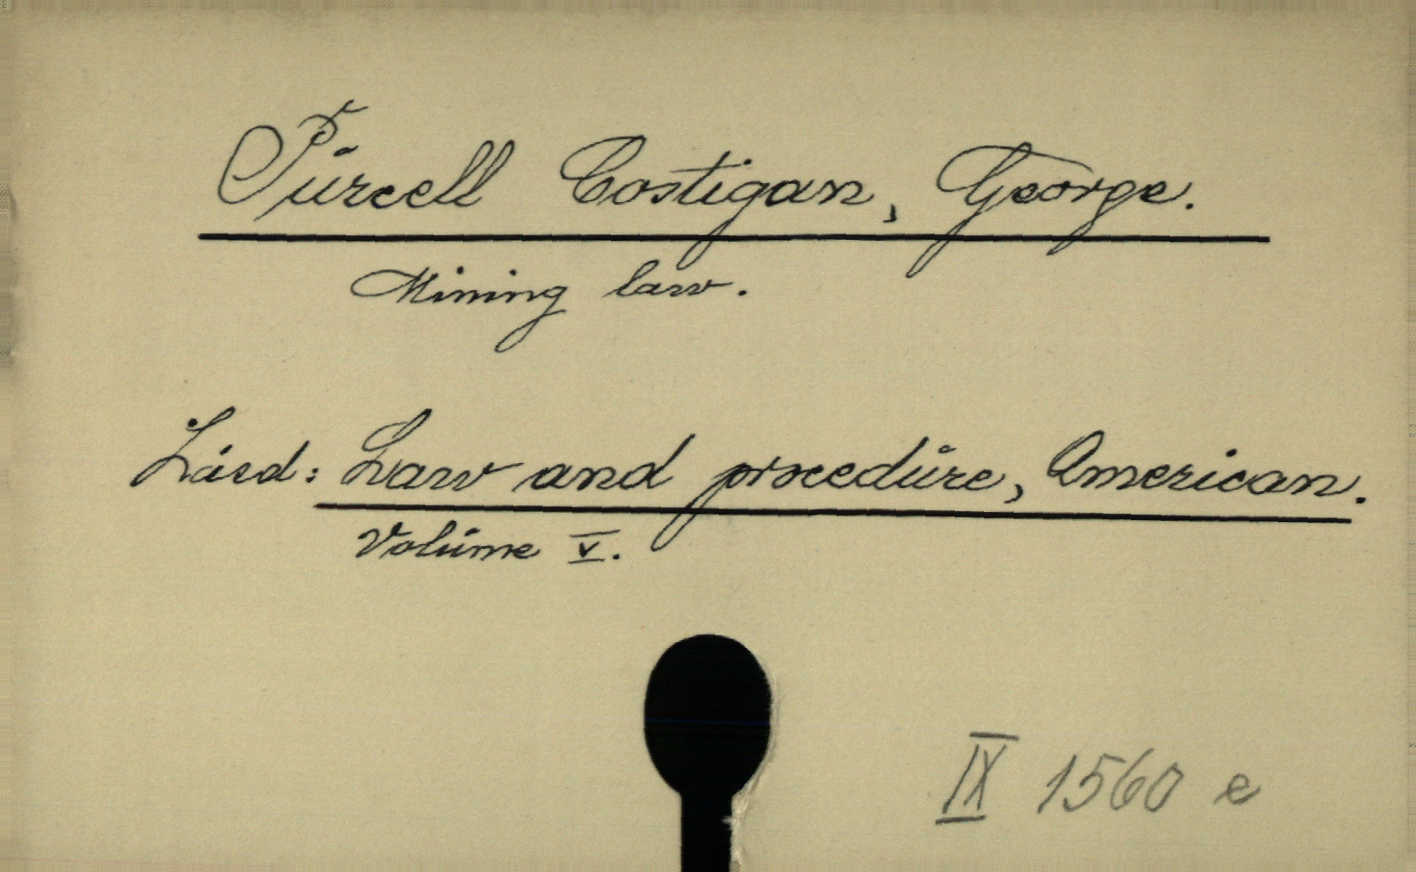 Purcell Costigan, George.
Mining law.
Lásd: Law and procedure, American.
Volume V.
IX 1560 e